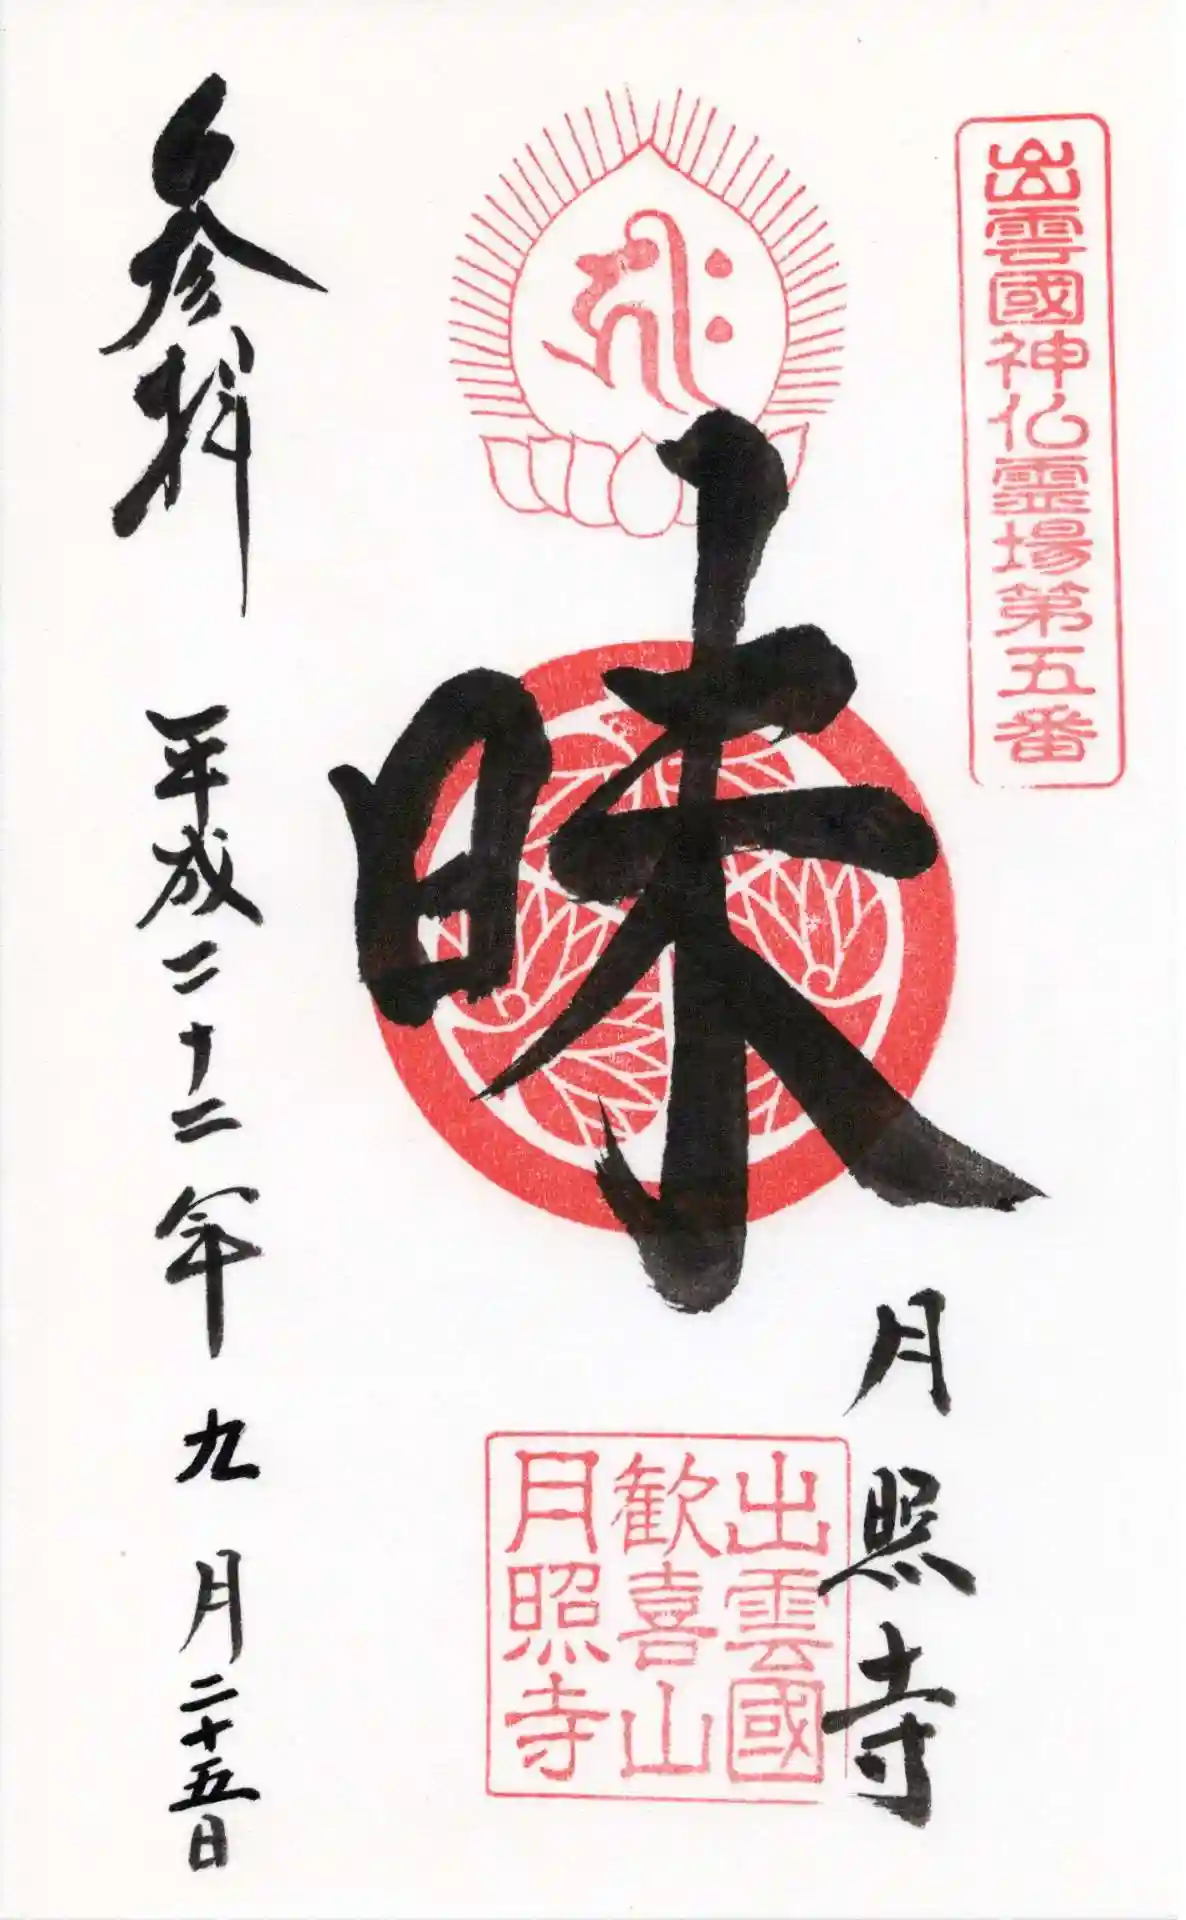 出雲國神仏霊場第五番
月照寺
ह्रीः
昧
出雲國
歓喜山
月照寺
参拝
平成二十二年九月二十五日